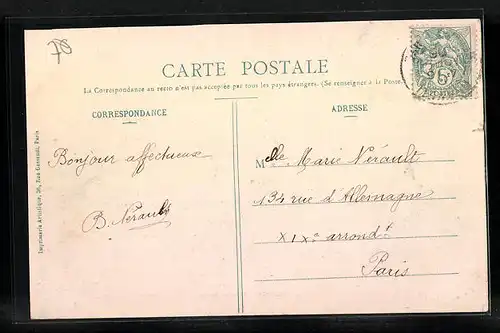 78
CARTE POSTALE
La Correspondance au recto n'est pas acceptée par tous les pays étrangers. (Se renseigner à la Poste
CORRESPONDANCE
ADRESSE
Bonjour affectueux
B. Nérault
Melle Marie Nérault
134 rue d'Allemagne
XIXe arrondt
Paris
Imprimerie Artistique, Rue Paris